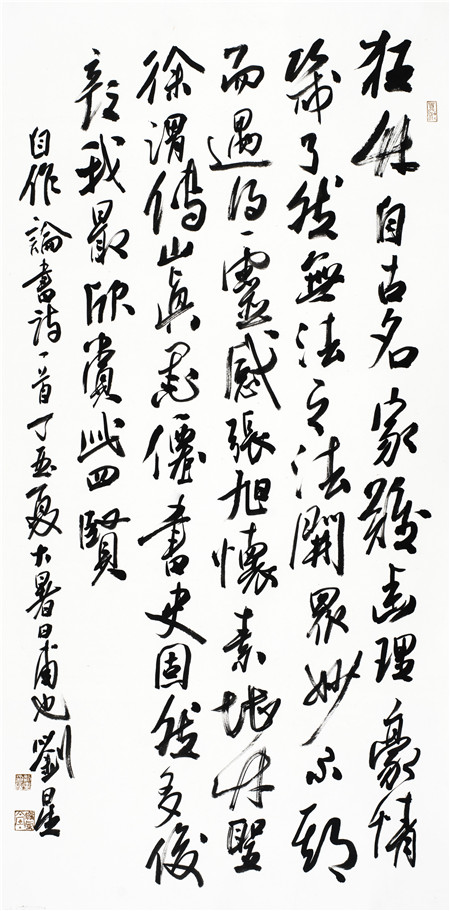 狂艸自古名家難幽理豪情
了然無法之法開眾妙不期
而遇得靈感張旭懷素堪艸聖
徐渭傅山真墨僊書史固然多俊
彥我最欣賞此四賢
自作論書詩一首丁夏大暑日甫也劉星